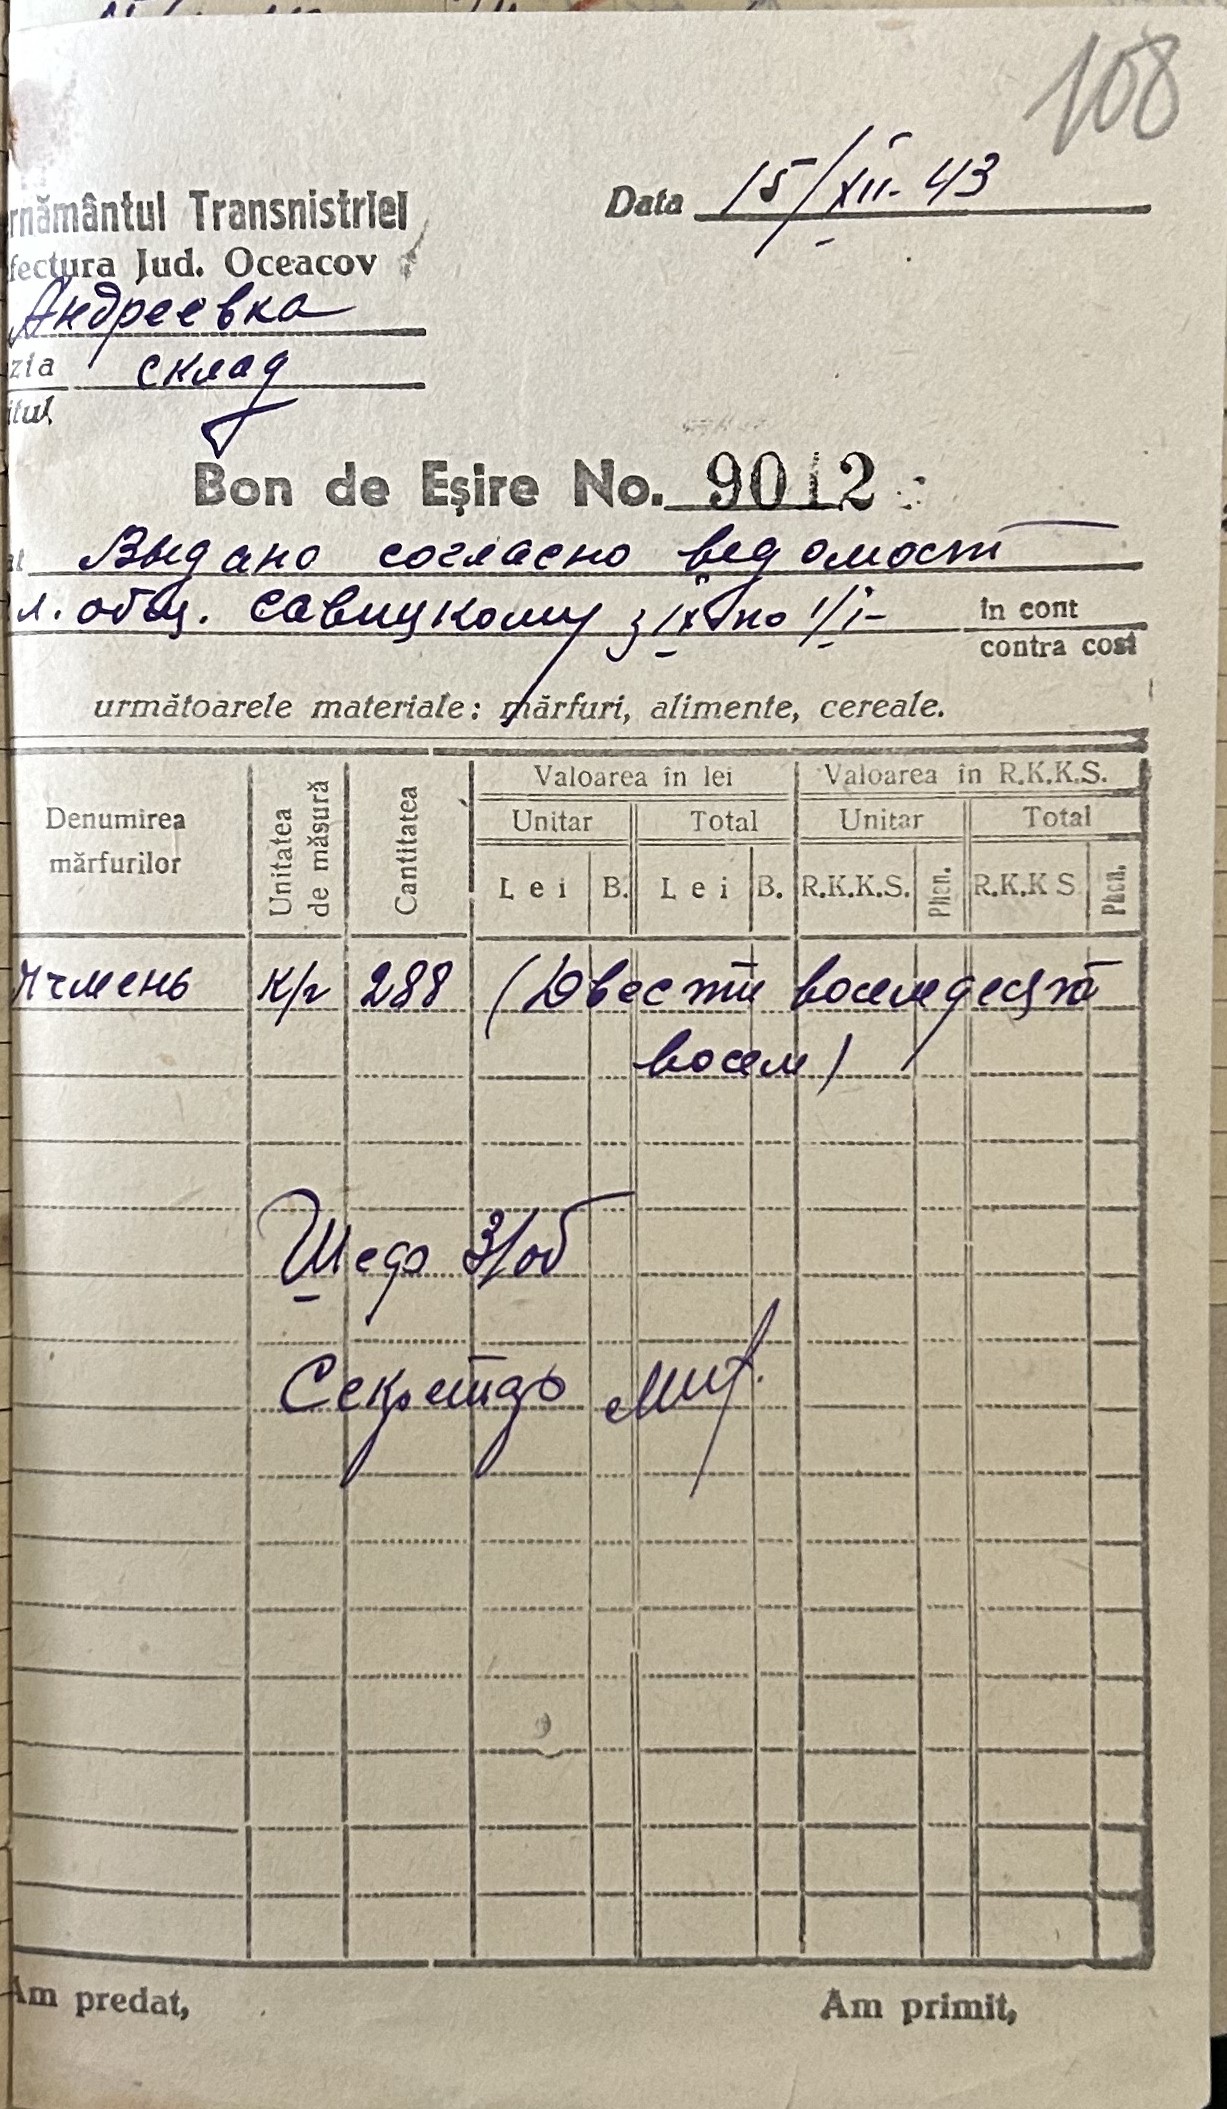 108
rnământul Transnistriei
Data 15/XII-43
fectura Jud. Oceacov
Андреевка
zia склад
itul
Bon de Eşire No. 9012
al Выдано согласно ведомост
л. общ. Савицкому з IX по 1/I- în cont
contra cost
următoarele materiale: mărfuri, alimente, cereale.
Denumirea mărfurilor Unitatea de măsură Cantitatea Valoarea în lei Valoarea în R.K.K.S.
Unitar Total Unitar Total
Lei B. Lei B. R.K.K.S. Phen. R.K.K S. Phen.
Ячмень к/г 288 (Двести восемдесят
восем)
Шеф З/об
Секретарь
Am predat, Am primit,